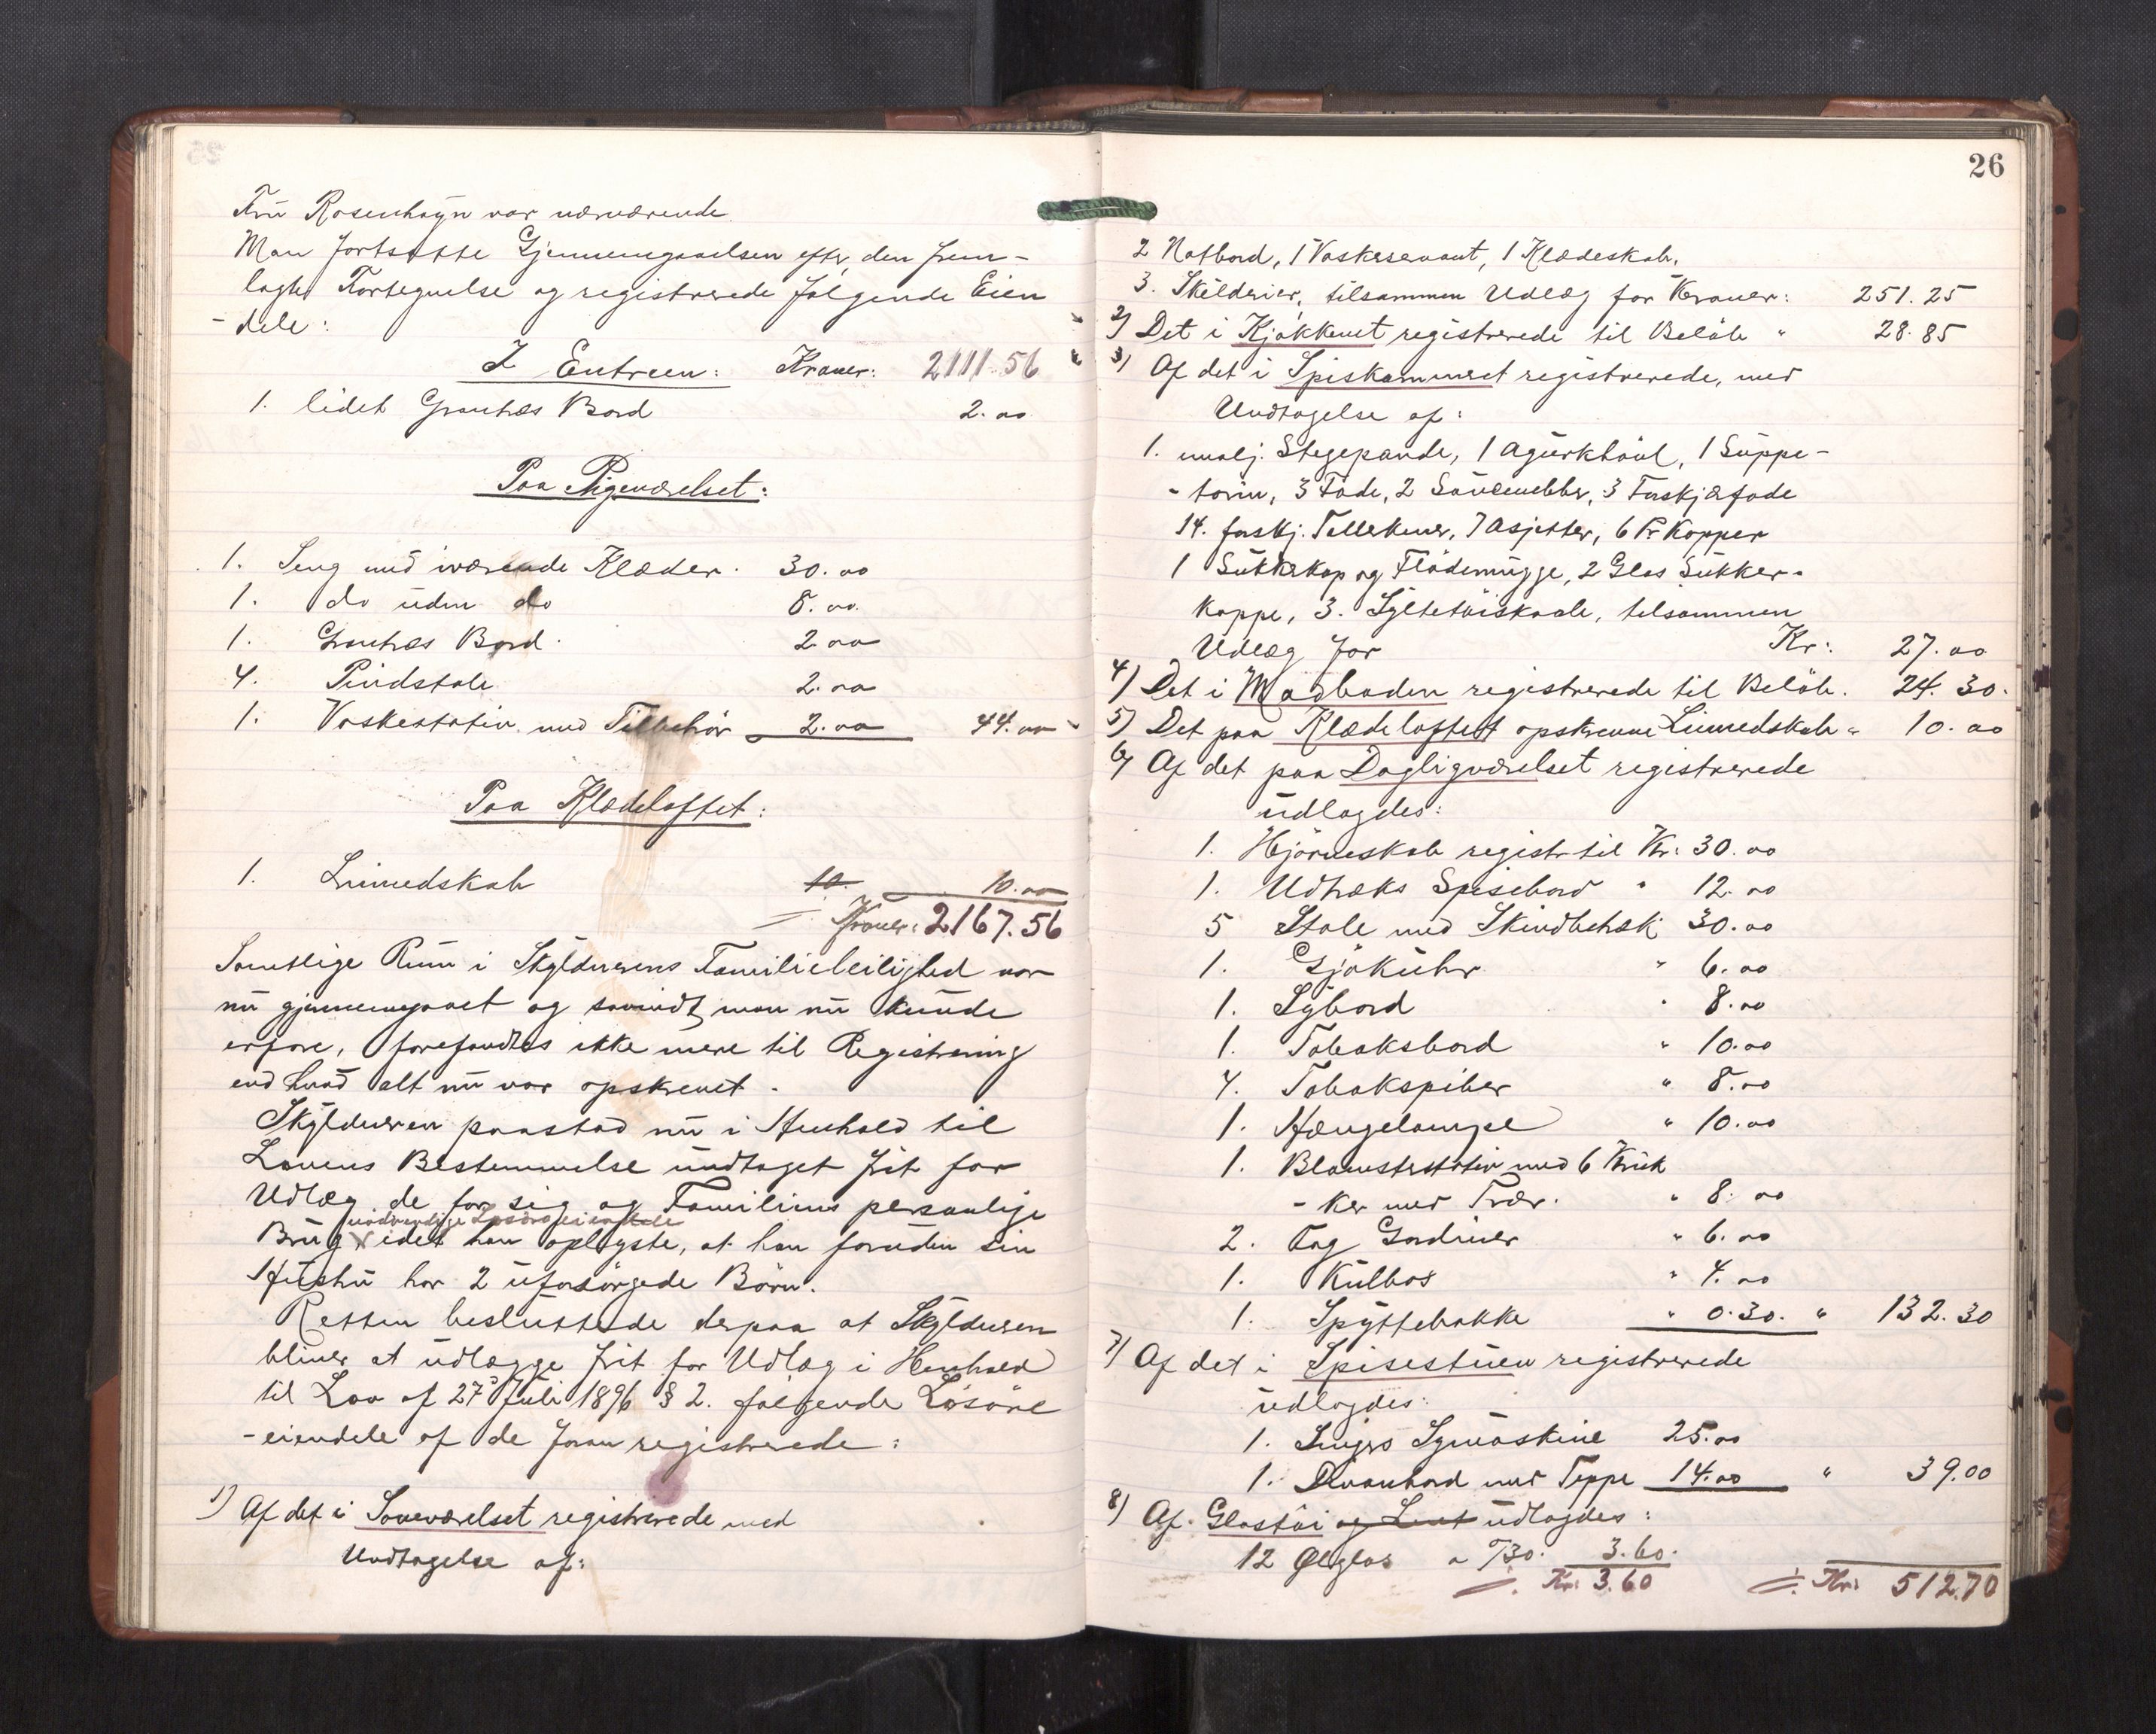 Fru Rosenhayn var nærværende.
Man fortsatte Gjennemgaaelsen efter den frem-
lagte Fortegnelse og registrerede følgende Eien
-dele:
I Entreen: Kroner: 2111.56
1. lidet Grantræs Bord 2.00
Paa Pigeværelset:
1. Seng med iværende Klæder. 30.00
1. do uden do 8.00
1. Grantræs Bord. 2.00
4. Pindstole 2.00
1. Vaskestativ med Tilbehør 2.00 44.00
Paa Klædeloftet:
1. Linnedskab 10. 10.00
Kroner: 2167.56
Samtlige Rum i Skyldnerens Familieleilighed var
nu gjennemgaaet og saavidt man nu kunde
erfare, forefandtes ikke mere til Registrering
end hvad alt nu var opskrevet.
Skyldneren paastod nu i Henhold til
Lovens Bestemmelse undtaget frit for
Udlæg de for sig og Familiens personlige
nødvendige Løsøreeiendele
Brug idet han oplyste, at han foruden sin
Hustru har 2 uforsørgede Børn.
Retten besluttede derpaa at Skyldneren
bliver at udlægge frit for Udlæg i Henhold
til Lov af 27 Juli 1896 § 2. følgende Løsøre
-eiendele af de foran registrerede:
1) Af det i Soveværelset registrerede med
Undtagelse af:
26
2 Natbord, 1 Vaskeservant, 1 Klædeskab,
3. Skilderier, tilsammen Udlæg for Kroner: 251.25
2) Det i Kjøkkenet registrerede til Beløb " 28.85
3) Af det i Spiskammeret registrerede, med
Undtagelse af:
1. emalj. Stegepande, 1 Agurkhøvl, 1 Suppe-
-terin, 3 Fade, 2 Sauenebber, 3 Forskjærfade
14. forskj. Tallerkener, 7 Asjetter, 6 Pr Kopper
1 Sukkerkop og Flødemugge, 2 Glas Sukker-
koppe, 3. Syltetøiskaale, tilsammen
Udlæg for Kr: 27.00
4) Det i Madboden registrerede til Beløb. 24.30.
5) Det paa Klædeloftet opskrevne Linnedskab " 10.00
6) Af det paa Dagligværelset registrerede
udlagdes:
1. Hjørneskab registr. til Kr. 30.00
1. Udtræks Spisebord " 12.00
5 Stole med Skindbetræk 30.00
1. Gjøkuhr " 6.00
1. Sybord " 8.00
1. Tobaksbord " 10.00
4. Tobakspiber " 8.00
1. Hængelampe " 10.00
1. Blomsterstativ med 6 Kruk
-ker med Trær. " 8.00
2. Fag Gardiner " 6.00
1. Kulbox " 4.00
1. Spyttebakke " 0.30. " 132.30
7) Af det i Spisestuen registrerede
udlagdes:
1. Singers Symaskine 25.00
1. Divanbord med Teppe 14.00 " 39.00
8) Af Glastøi og udlagdes:
12 Ølglas a /30. 3.60.
Kr: 3.60 Kr: 512.70